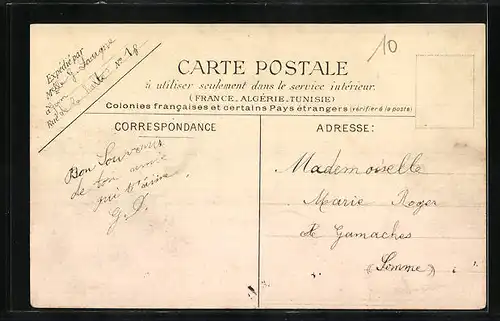 Expédié par
Melle G.
Rue de la N° 18
10
CARTE POSTALE
à utiliser seulement dans le service intérieur.
(FRANCE, ALGÉRIE, TUNISIE)
Colonies françaises et certains Pays étrangers (vérifier à la poste)
CORRESPONDANCE
Bon Souvenir
de ton amie
qui t'aime
ADRESSE:
Mademoiselle
Marie Roger
de Gamaches
(Somme)